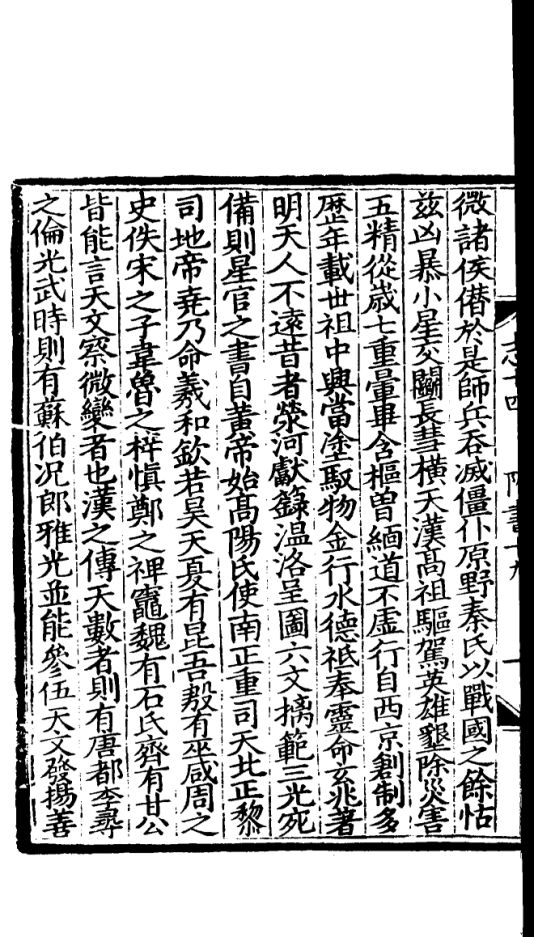 微諸侯僭於是師兵吞滅僵仆原野秦氏以戰國之餘怙
茲凶暴小星交鬭長彗橫天漢髙祖驅駕英雄墾除災害
五精從歲七重暈畢含樞曾緬道不虛行自西京創制多
歷年載世祖中興當塗馭物金行水德祗奉靈命玄兆著
明天人不遠昔者滎河獻籙温洛呈圖六文摛範三光死
備則星官之書自黃帝始髙陽氏使南正重司天北正黎
司地帝堯乃命羲和欽若昊天夏有昆吾殷有巫咸周之
史佚宋之子韋魯之梓慎鄭之裨竈魏有石氏齊有甘公
皆能言天文察微變者也漢之傳天數者則有唐都李尋
之倫光武時則有蘇伯况郎雅光並能參伍天文發揚善